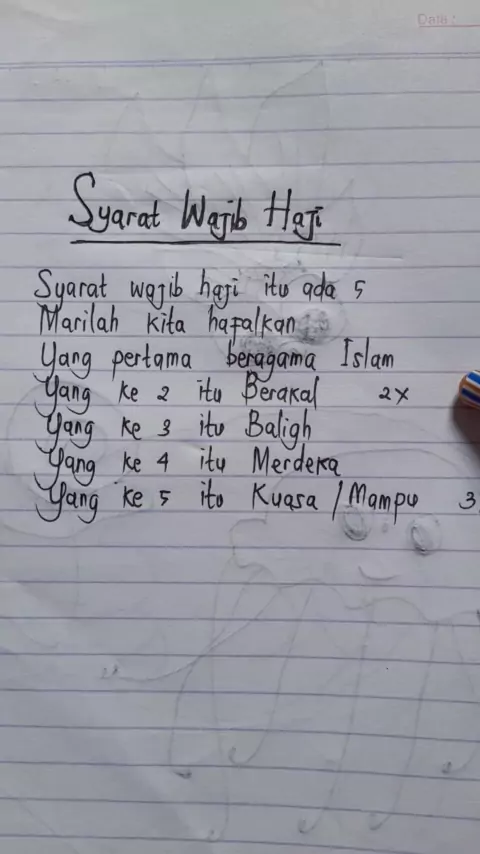 Data :
Syarat Wajib Haji
Syarat wajib haji itu ada 5
Marilah kita hafalkan
Yang pertama beragama Islam
Yang ke 2 itu Berakal 2x
Yang ke 3 itu Baligh
Yang ke 4 itu Merdeka
Yang ke 5 itu Kuasa / Mampu 3